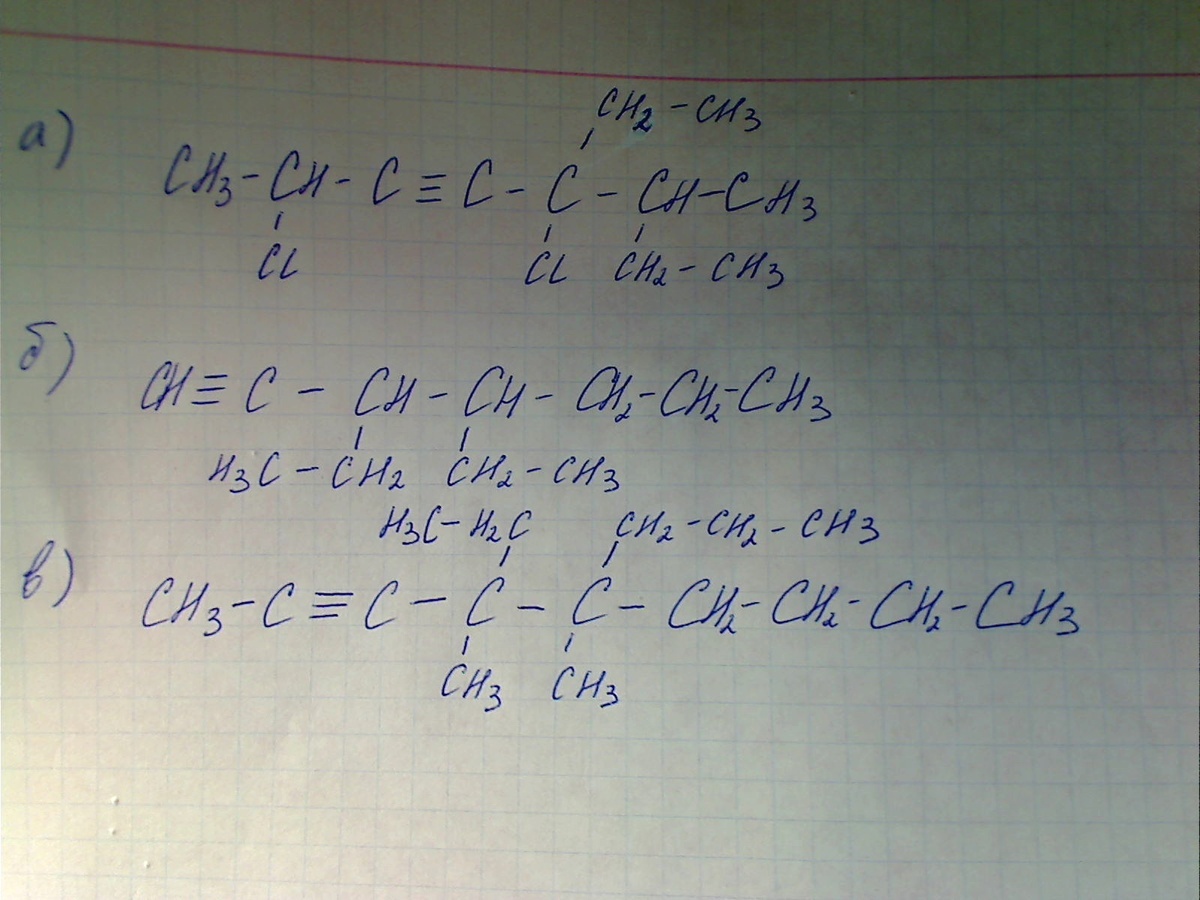 CH2 - CH3
а) CH3 - CH - C ≡ C - C - CH - CH3
Cl Cl CH2 - CH3
б) CH ≡ C - CH - CH - CH2 - CH2 - CH3
H3C - CH2 CH2 - CH3
H3C - H2C CH2 - CH2 - CH3
в) CH3 - C ≡ C - C - C - CH2 - CH2 - CH2 - CH3
CH3 CH3